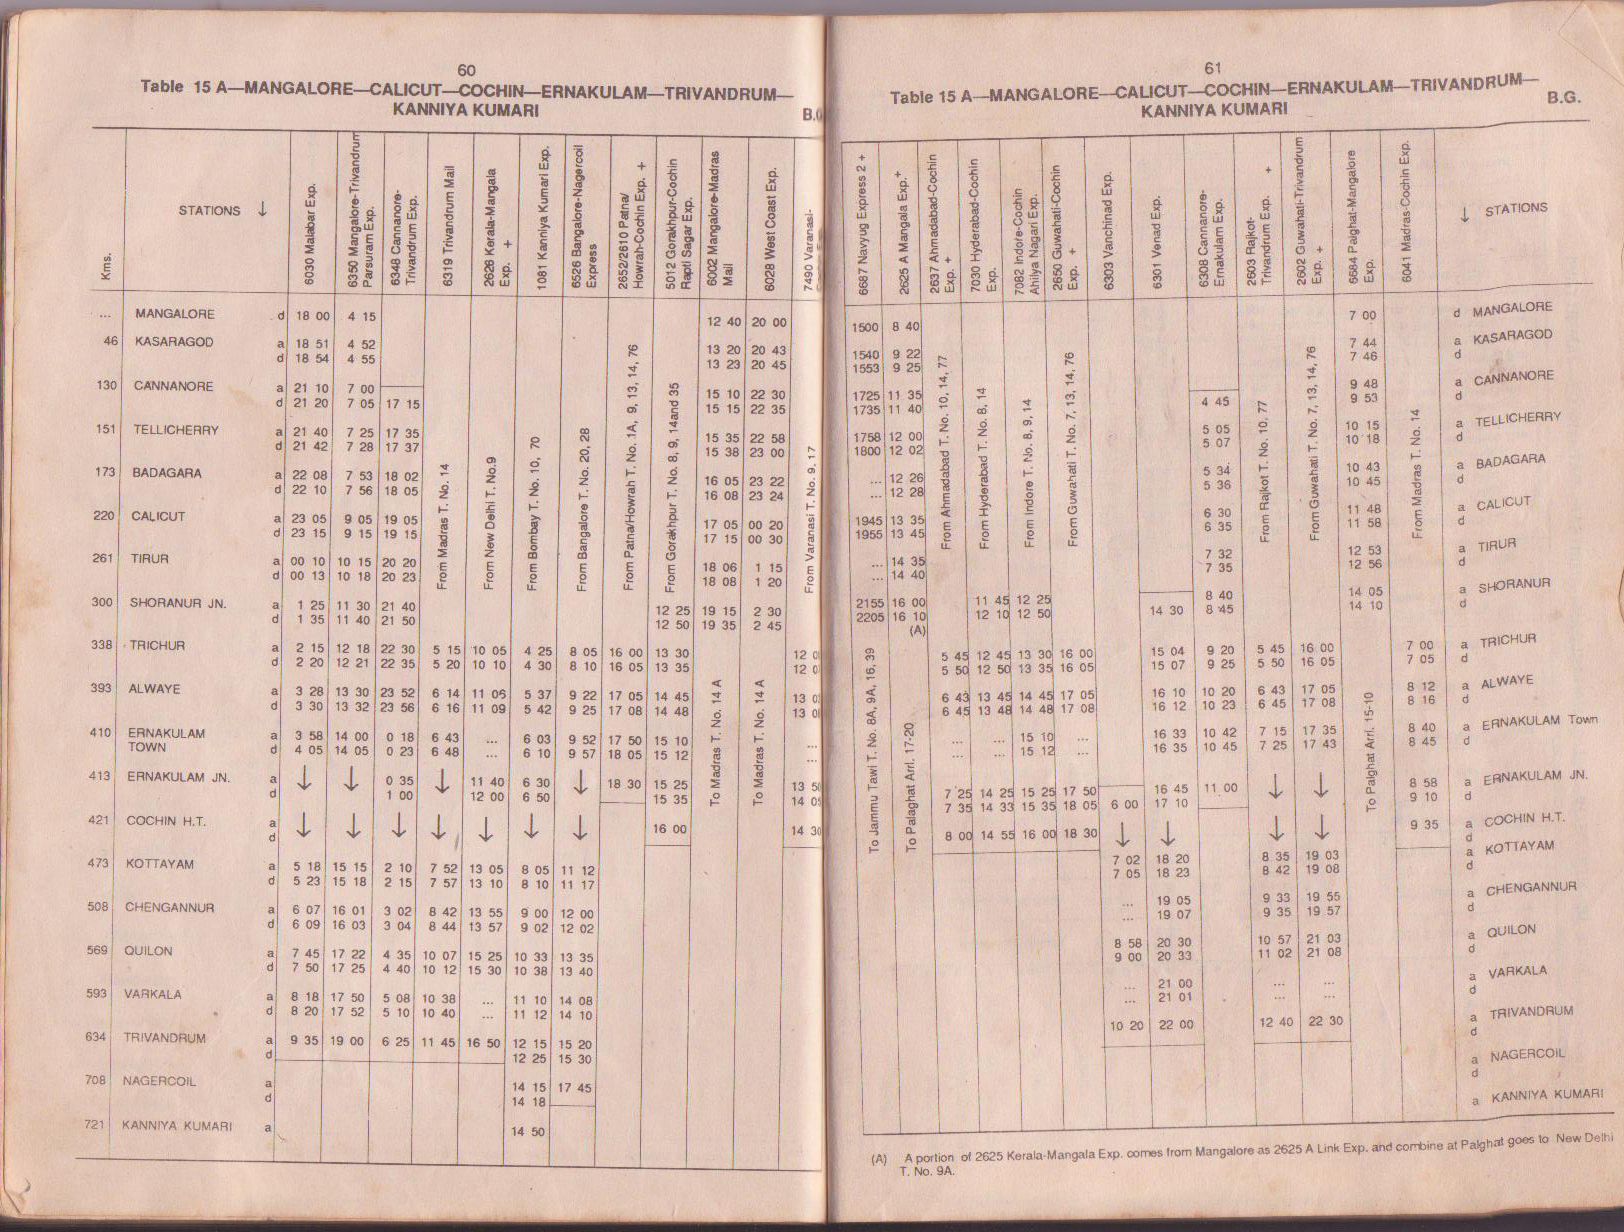 60
Table 15 A—MANGALORE—CALICUT—COCHIN—ERNAKULAM—TRIVANDRUM—
KANNIYA KUMARI
Kms. STATIONS ↓ 6030 Malabar Exp. 6350 Mangalore-Trivandrum Parsuram Exp. 6348 Cannanore-Trivandrum Exp. 6319 Trivandrum Mail 2626 Kerala-Mangala Exp. + 1081 Kanniya Kumari Exp. 6526 Bangalore-Nagercoil Express 2652/2610 Patna/Howrah-Cochin Exp. + 5012 Gorakhpur-Cochin Rapti Sagar Exp. 6002 Mangalore-Madras Mail 6028 West Coast Exp. 7490 Varanasi-
... MANGALORE d 18 00 4 15 12 40 20 00
46 KASARAGOD a 18 51 4 52 13 20 20 43
d 18 54 4 55 13 23 20 45
130 CANNANORE a 21 10 7 00 15 10 22 30
d 21 20 7 05 17 15 15 15 22 35
151 TELLICHERRY a 21 40 7 25 17 35 15 35 22 58
d 21 42 7 28 17 37 15 38 23 00
173 BADAGARA a 22 08 7 53 18 02 16 05 23 22
d 22 10 7 56 18 05 16 08 23 24
220 CALICUT a 23 05 9 05 19 05 17 05 00 20
d 23 15 9 15 19 15 17 15 00 30
261 TIRUR a 00 10 10 15 20 20 18 06 1 15
d 00 13 10 18 20 23 18 08 1 20
300 SHORANUR JN. a 1 25 11 30 21 40 12 25 19 15 2 30
d 1 35 11 40 21 50 12 50 19 35 2 45
From Madras T. No. 14
From New Delhi T. No.9
From Bombay T. No. 10, 70
From Bangalore T. No. 20, 28
From Patna/Howrah T. No. 1A, 9, 13, 14, 76
From Gorakhpur T. No. 8, 9, 14and 35
From Varanasi T. No. 9, 17
338 TRICHUR a 2 15 12 18 22 30 5 15 10 05 4 25 8 05 16 00 13 30
d 2 20 12 21 22 35 5 20 10 10 4 30 8 10 16 05 13 35
393 ALWAYE a 3 28 13 30 23 52 6 14 11 06 5 37 9 22 17 05 14 45
d 3 30 13 32 23 56 6 16 11 09 5 42 9 25 17 08 14 48
410 ERNAKULAM a 3 58 14 00 0 18 6 43 ... 6 03 9 52 17 50 15 10 ...
TOWN d 4 05 14 05 0 23 6 48 ... 6 10 9 57 18 05 15 12 ...
413 ERNAKULAM JN. a ↓ ↓ 0 35 ↓ 11 40 6 30 ↓ 18 30 15 25
d 1 00 12 00 6 50 15 35
421 COCHIN H.T. a ↓ ↓ ↓ ↓ ↓ ↓ ↓ 16 00 14 30
d
To Madras T. No. 14 A
To Madras T. No. 14 A
473 KOTTAYAM a 5 18 15 15 2 10 7 52 13 05 8 05 11 12
d 5 23 15 18 2 15 7 57 13 10 8 10 11 17
508 CHENGANNUR a 6 07 16 01 3 02 8 42 13 55 9 00 12 00
d 6 09 16 03 3 04 8 44 13 57 9 02 12 02
569 QUILON a 7 45 17 22 4 35 10 07 15 25 10 33 13 35
d 7 50 17 25 4 40 10 12 15 30 10 38 13 40
593 VARKALA a 8 18 17 50 5 08 10 38 ... 11 10 14 08
d 8 20 17 52 5 10 10 40 ... 11 12 14 10
634 TRIVANDRUM a 9 35 19 00 6 25 11 45 16 50 12 15 15 20
d 12 25 15 30
708 NAGERCOIL a 14 15 17 45
d 14 18
721 KANNIYA KUMARI a 14 50
61
Table 15 A—MANGALORE—CALICUT—COCHIN—ERNAKULAM—TRIVANDRUM—
KANNIYA KUMARI B.G.
6687 Navyug Express 2 + 2625 A Mangala Exp.+ 2637 Ahmadabad-Cochin Exp. + 7030 Hyderabad-Cochin Exp. 7082 Indore-Cochin Ahilya Nagari Exp. 2650 Guwahati-Cochin Exp. + 6303 Vanchinad Exp. 6301 Venad Exp. 6308 Cannanore-Ernakulam Exp. 2603 Rajkot-Trivandrum Exp. + 2602 Guwahati-Trivandrum Exp. + 6684 Palghat-Mangalore Exp. 6041 Madras-Cochin Exp. ↓ STATIONS
1500 8 40 7 00 d MANGALORE
1540 9 22 7 44 a KASARAGOD
1553 9 25 7 46 d
1725 11 35 9 48 a CANNANORE
1735 11 40 4 45 9 53 d
1758 12 00 5 05 10 15 a TELLICHERRY
1800 12 02 5 07 10 18 d
... 12 26 5 34 10 43 a BADAGARA
... 12 28 5 36 10 45 d
1945 13 35 6 30 11 48 a CALICUT
1955 13 45 6 35 11 58 d
... 14 35 7 32 12 53 a TIRUR
... 14 40 7 35 12 56 d
2155 16 00 11 45 12 25 8 40 14 05 a SHORANUR
2205 16 10 12 10 12 50 14 30 8 45 14 10 d
(A)
From Ahmadabad T. No. 10, 14, 77
From Hyderabad T. No. 8, 14
From Indore T. No. 8, 9, 14
From Guwahati T. No. 7, 13, 14, 76
From Rajkot T. No. 10, 77
From Guwahati T. No. 7, 13, 14, 76
From Madras T. No. 14
5 45 12 45 13 30 16 00 15 04 9 20 5 45 16 00 7 00 a TRICHUR
5 50 12 50 13 35 16 05 15 07 9 25 5 50 16 05 7 05 d
6 43 13 45 14 45 17 05 16 10 10 20 6 43 17 05 8 12 a ALWAYE
6 45 13 48 14 48 17 08 16 12 10 23 6 45 17 08 8 16 d
... ... 15 10 ... 16 33 10 42 7 15 17 35 8 40 a ERNAKULAM Town
... ... 15 12 ... 16 35 10 45 7 25 17 43 8 45 d
7 25 14 25 15 25 17 50 16 45 11 00 ↓ ↓ 8 58 a ERNAKULAM JN.
7 35 14 33 15 35 18 05 6 00 17 10 9 10 d
8 00 14 55 16 00 18 30 ↓ ↓ ↓ ↓ 9 35 a COCHIN H.T.
d
To Jammu Tawi T. No. 8A, 9A, 16, 39
To Palaghat Arrl. 17-20
To Palghat Arrl. 15-10
7 02 18 20 8 35 19 03 a KOTTAYAM
7 05 18 23 8 42 19 08 d
... 19 05 9 33 19 55 a CHENGANNUR
... 19 07 9 35 19 57 d
8 58 20 30 10 57 21 03 a QUILON
9 00 20 33 11 02 21 08 d
... 21 00 ... ... a VARKALA
... 21 01 ... ... d
10 20 22 00 12 40 22 30 a TRIVANDRUM
d
a NAGERCOIL
d
a KANNIYA KUMARI
(A) A portion of 2625 Kerala-Mangala Exp. comes from Mangalore as 2625 A Link Exp. and combine at Palghat goes to New Delhi
T. No. 9A.